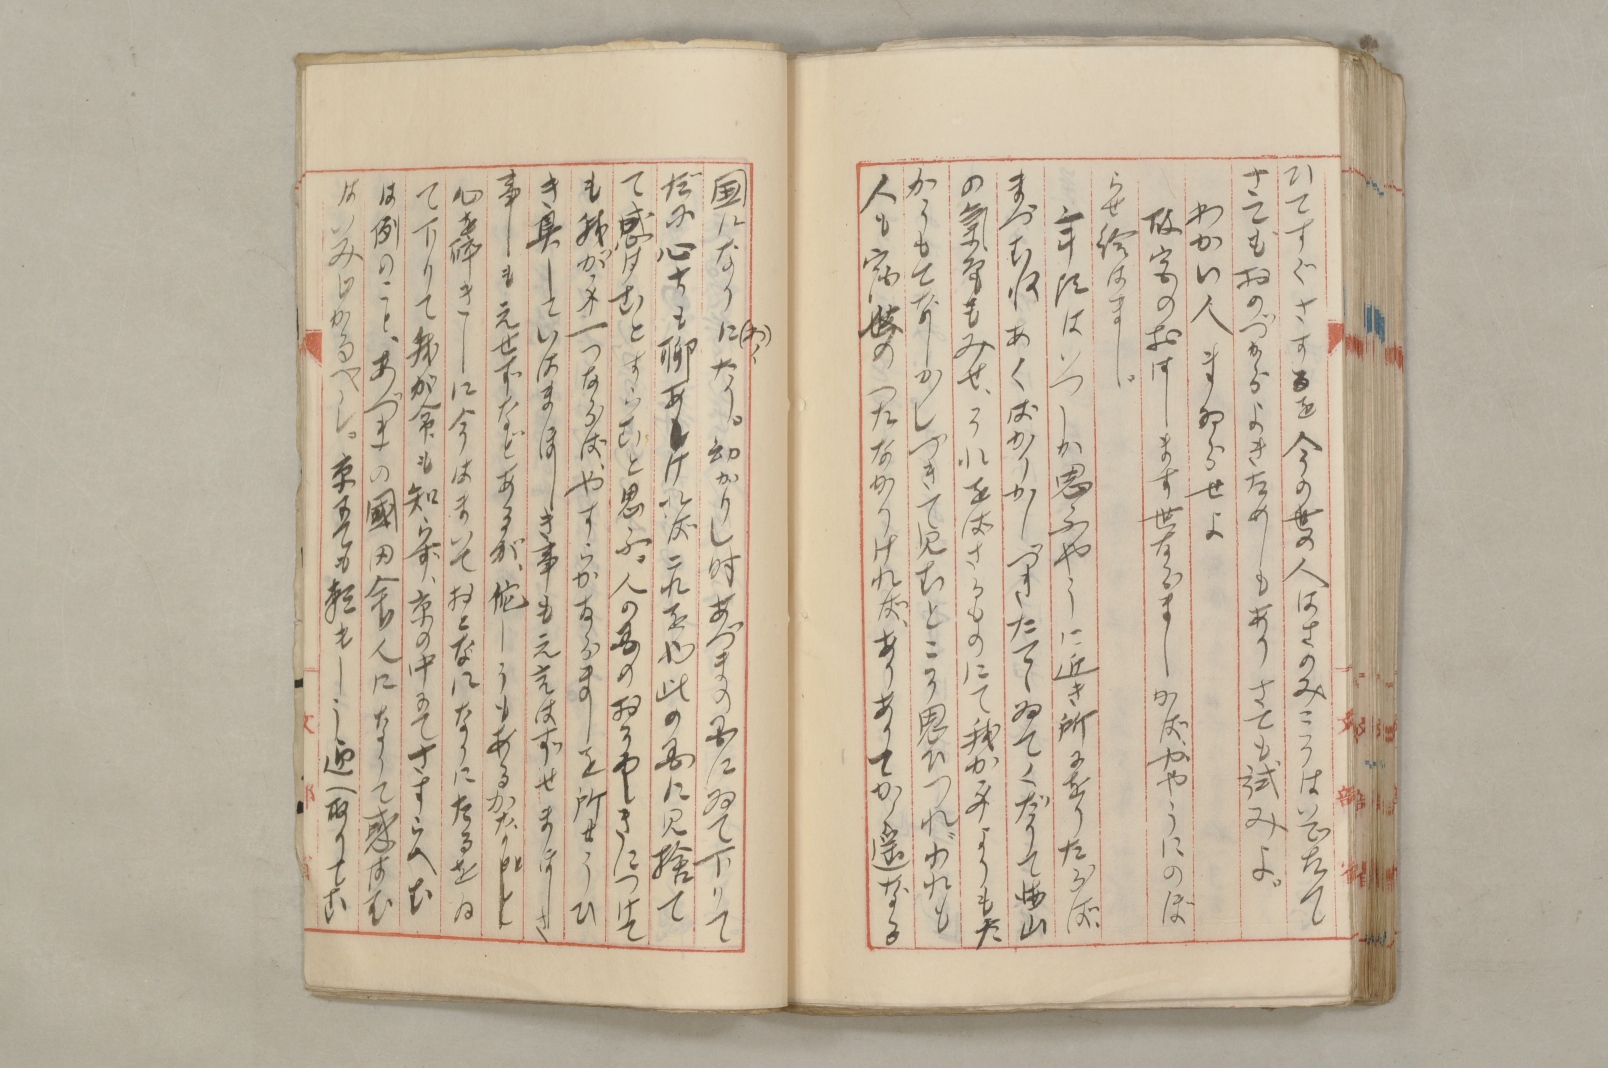 ひてすぐさするを今の世の人はさのみこそは出たて
さてもおのづからよきためしもあり さても試みよ。
わかい人まゐらせよ
故宮のおはします世ならましかばかやうにのぼ
らせ給はまし。
年頃はいつしか思ふやうに近き所になりたらば、
まづむねあくばかりかしづきたてゝゐてくだりて海山
の氣色もみせ、それをばさるものにて我が身よりもた
かうもてなしかしづきて見むとこそ思ひつれ、われも
人も宿世のつたなかりければ、ありありてかく遥なる
国になりにたり。幼かりし時あづまの国にゐて下りて
だに心ちも聊あしければこれをや此の国に見捨て
て惑はむとすらむと思ふ。人の国のおそろしきにつけて
も我が身一つならば、やすらかならましを所せうひ
き具していはまほしき事も元言はずせまほしき
事しもえせずなどあるが、侘しうもあるかなと
心を砕きしに今はまいておとなになりにたるをゐ
て下りて我が命も知らず、京の中にてさすらへむ
は例のこと、あづまの國田舎人になりて惑はむ
はいみじかるべし。京にても頼もしう迎へ取りてむ